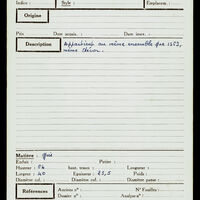 Indice : Style : Emplacem. :
Origine
Prix Date acquis. : Date inv. :
Description Appartient au même ensemble que 1352,
même décor.
Matière : Grès
Enduit : Patine :
Hauteur 54 haut. totale : Longueur :
Largeur : 40 Epaisseur : 25,5 Poids :
Diamètre ouv. : Diamètre panse :
Références Ancien n° : N° Fouilles :
Dossier n° : Analyse n° :